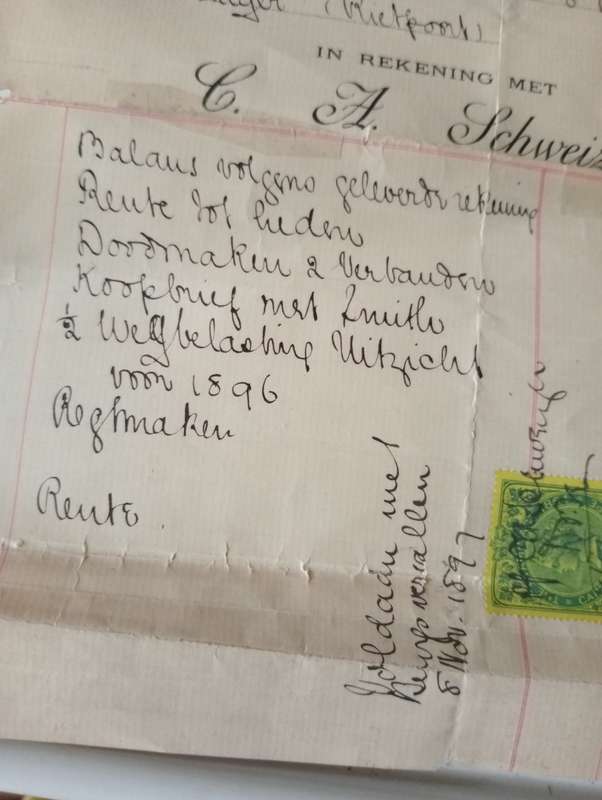 (Rietpoort)
IN REKENING MET
C. A. Schweiz
Balans volgens geleverde rekening
Rente tot heden
Doodmaken 2 Verbanden
Koopbrief met Smith
½ Wegbelasting Uitzicht
voor 1896
Regmaken
Rente
Voldaan met
Bewys vervallen
8 Nov. 1897